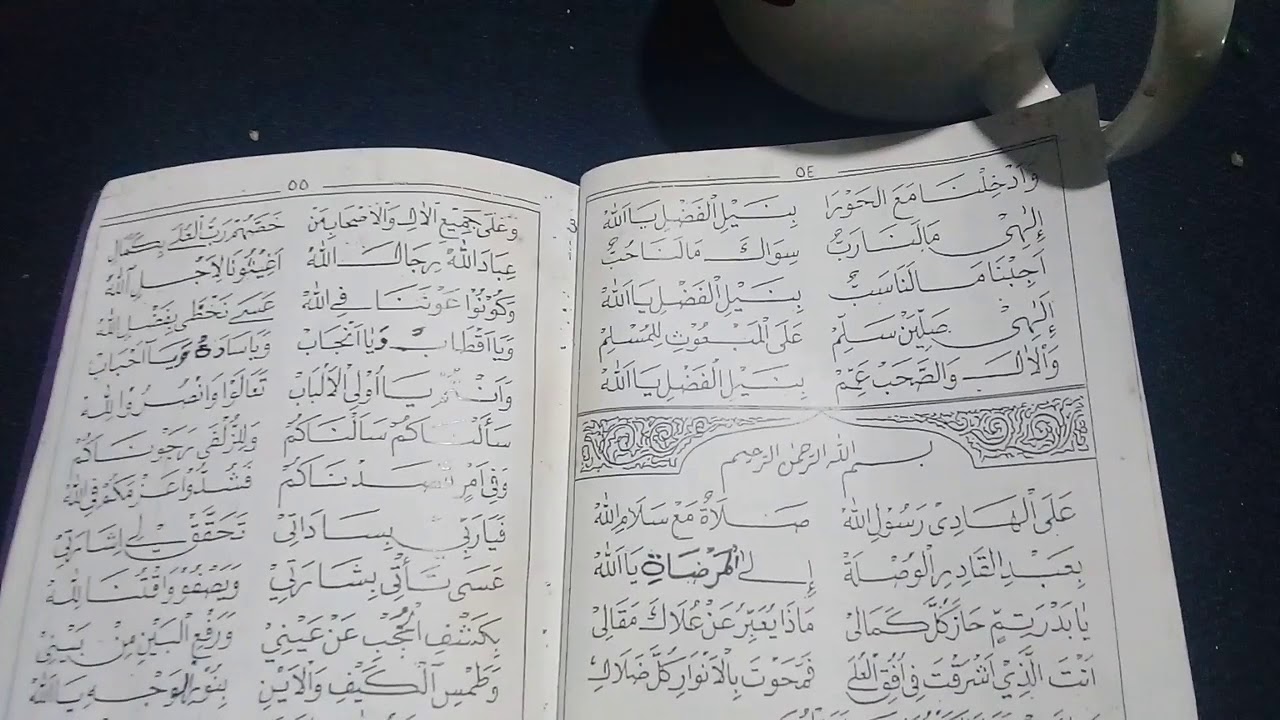 ٥٤
وَاَدْخِلْنَا مَعَ الْحَوْرَا بِنَيْلِ الْفَضْلِ يَا اَللهُ
اِلٰهِى مَالَنَا رَبٌّ سِوَاكَ مَالَنَا حُبٌّ
اَجِبْنَا مَالَنَا سَبَبٌ بِنَيْلِ الْفَضْلِ يَا اَللهُ
اِلٰهِى صَلِّيَنْ سَلِّمْ عَلَى الْمَبْعُوْثِ لِلْمُسْلِمْ
وَالْاٰلِ وَالصَّحْبِ عَمِّمْ بِنَيْلِ الْفَضْلِ يَا اَللهُ
بسم الله الرحمن الرحيم
صَلَاةٌ مَعَ سَلَامِ اللهِ عَلَى الْهَادِى رَسُوْلِ اللهِ
بِعَبْدِ الْقَادِرِ الْوُصْلَةْ إِلَى الْمَرْضَاةِ يَا اَللهُ
يَا بَدْرَتِمٍّ حَازَ كُلَّ كَمَالِى مَاذَا يُعَبِّرُ عَنْ عُلَاكَ مَقَالِى
اَنْتَ الَّذِيْ اَشْرَقْتَ فِى اُفُقِ الْعُلَى فَمَحَوْتَ بِالْاَنْوَارِ كُلَّ ضَلَالِ
٥٥
وَعَلَى جَمِيْعِ الْاٰلِ وَالْاَصْحَابِ مَنْ خَصَّهُمْ رَبُّ الْعُلَى بِكَمَالِ
عِبَادَ اللهِ رِجَالَ اللهِ اَغِيْثُوْنَا لِاَجْلِ اللهِ
وَكُوْنُوْا عَوْنَنَا فِى اللهِ عَسَى نَحْظَى بِفَضْلِ اللهِ
وَيَا اَقْطَابْ وَيَا اَنْجَابْ وَيَا سَادَةْ وَيَا اَحْبَابْ
وَاَنْتُمْ يَا اُوْلِى الْاَلْبَابْ تَعَالَوْا وَانْصُرُوْا لِلّٰهِ
سَأَلْنَاكُمْ سَأَلْنَاكُمْ وَلِلزُّلْفَى رَجَوْنَاكُمْ
وَفِى اَمْرٍ قَصَدْنَاكُمْ فَشُدُّوْا عَزْمَكُمْ فِى اللهِ
فَيَارَبِّيْ بِسَادَاتِيْ تَحَقَّقْ لِيْ اِشَارَتِيْ
عَسَى تَأْتِى بِشَارَتِيْ وَيَصْفُوْ وَقْتُنَا لِلّٰهِ
بِكَشْفِ الْحُجْبِ عَنْ عَيْنِيْ وَرَفْعِ الْبَيْنِ مِنْ بَيْنِيْ
وَطَمْسِ الْكَيْفِ وَالْاَيْنِ بِنُوْرِ الْوَجْهِ يَا اَللهُ